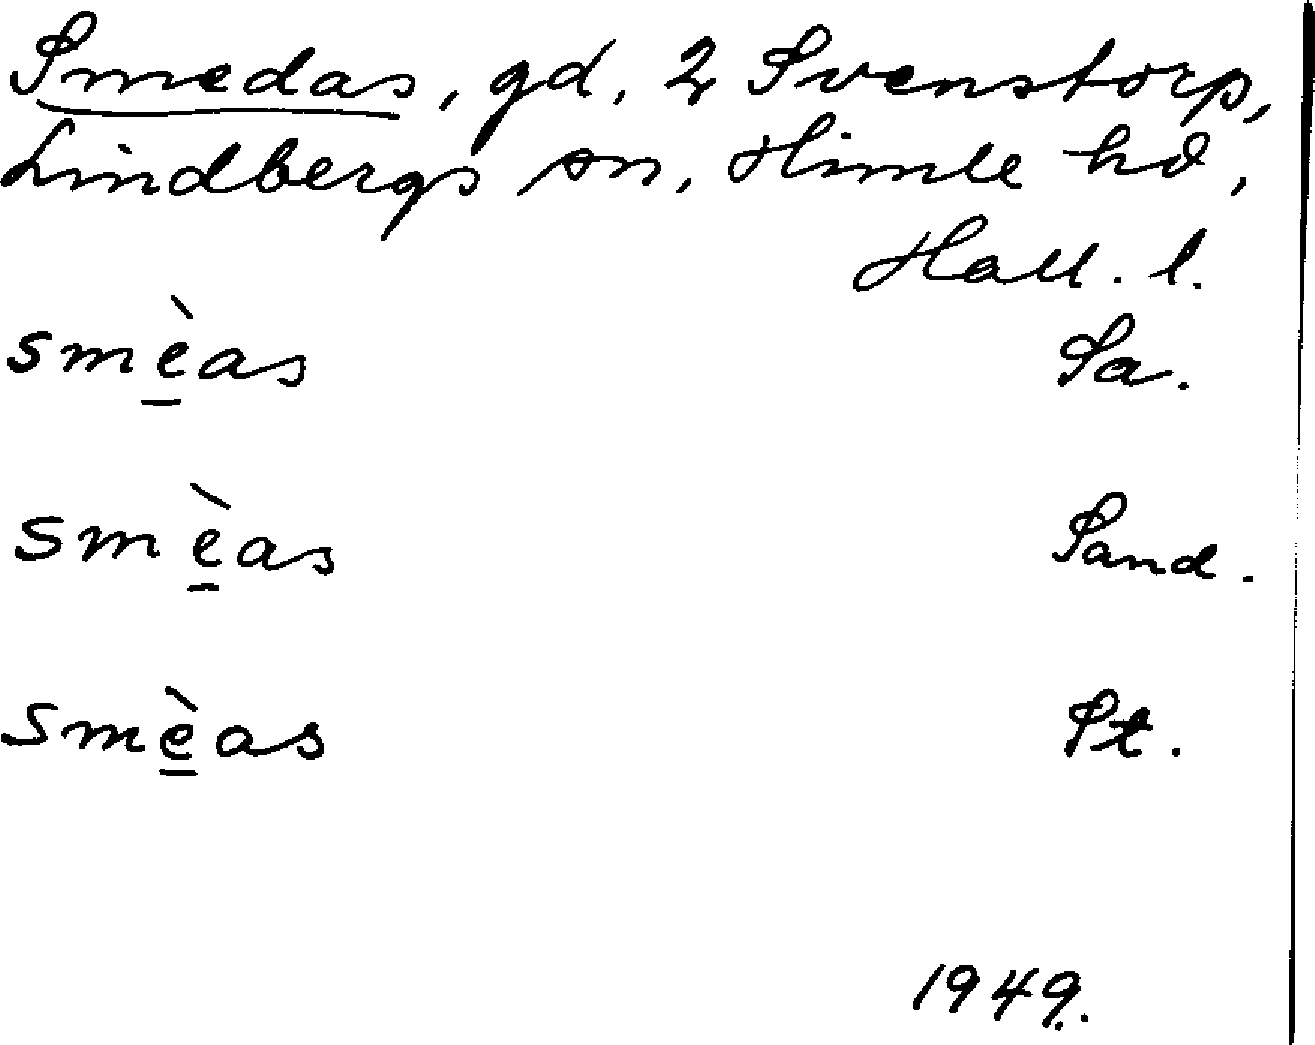 Smedas, gd, 2 Svenstorp,
Lindbergs sn, Himle hd,
Hall. l.
smèas Sa.
smèas Sand.
smèas St.
1949.